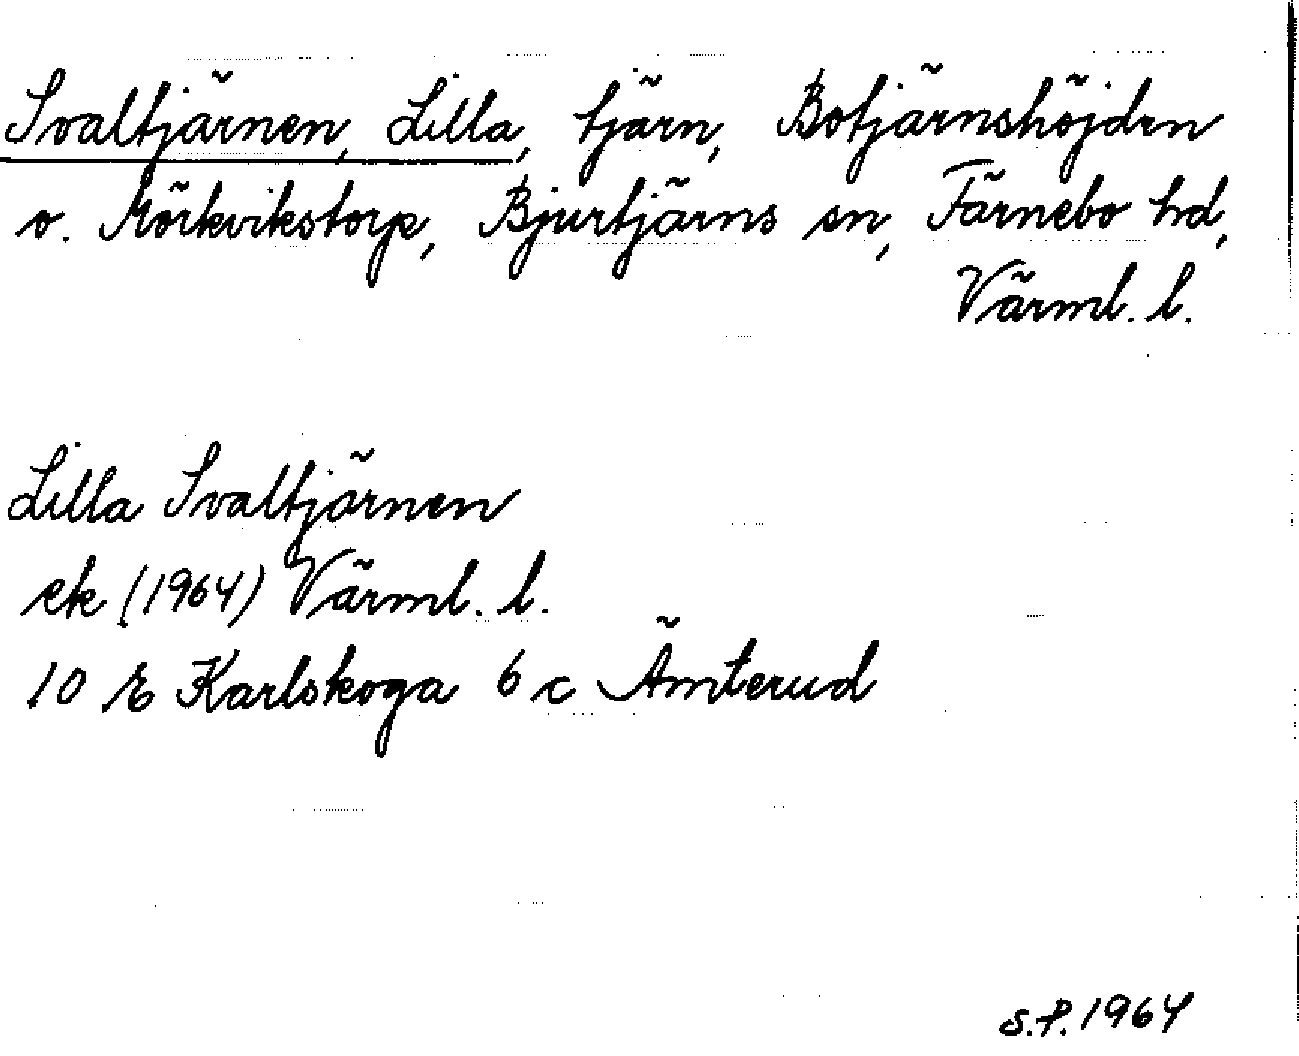 Svaltjärnen, Lilla, tjärn, Botjärnshöjden
o. Mörkvikstorp, Bjurtjärns sn, Färnebo hd,
Värml. l.
Lilla Svaltjärnen
ek (1964) Värml. l.
10 E Karlskoga 6 c Ämterud
S.P. 1964